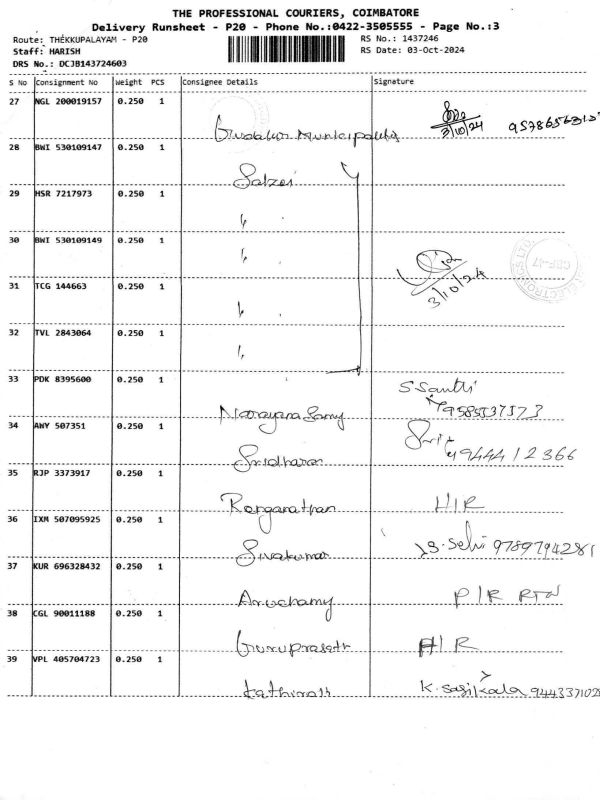 THE PROFESSIONAL COURIERS, COIMBATORE
Delivery Runsheet - P20 - Phone No.:0422-3505555 - Page No.:3
Route: THÉKKUPALAYAM - P20 RS No.: 1437246
Staff: HARISH RS Date: 03-Oct-2024
DRS No.: DCJB143724603
S No Consignment No Weight PCS Consignee Details Signature
27 NGL 200019157 0.250 1
3/10/24
Municipality
28 BWI 530109147 0.250 1
Salzer
29 HSR 7217973 0.250 1
30 BWI 530109149 0.250 1
31 TCG 144663 0.250 1
3/10/24
32 TVL 2843064 0.250 1
33 PDK 8395600 0.250 1
S Santhi
Narayana Samy 9585537573
34 AWY 507351 0.250 1
Sridharan 9444412366
35 RJP 3373917 0.250 1
Ranganathan H/R
36 IXM 507095925 0.250 1
Sivakumar S. Selvi 9789794281
37 KUR 696328432 0.250 1
Aruchamy P/R RTN
38 CGL 90011188 0.250 1
Guruprasath H/R
39 VPL 405704723 0.250 1
Kathiresh K. Sasikala